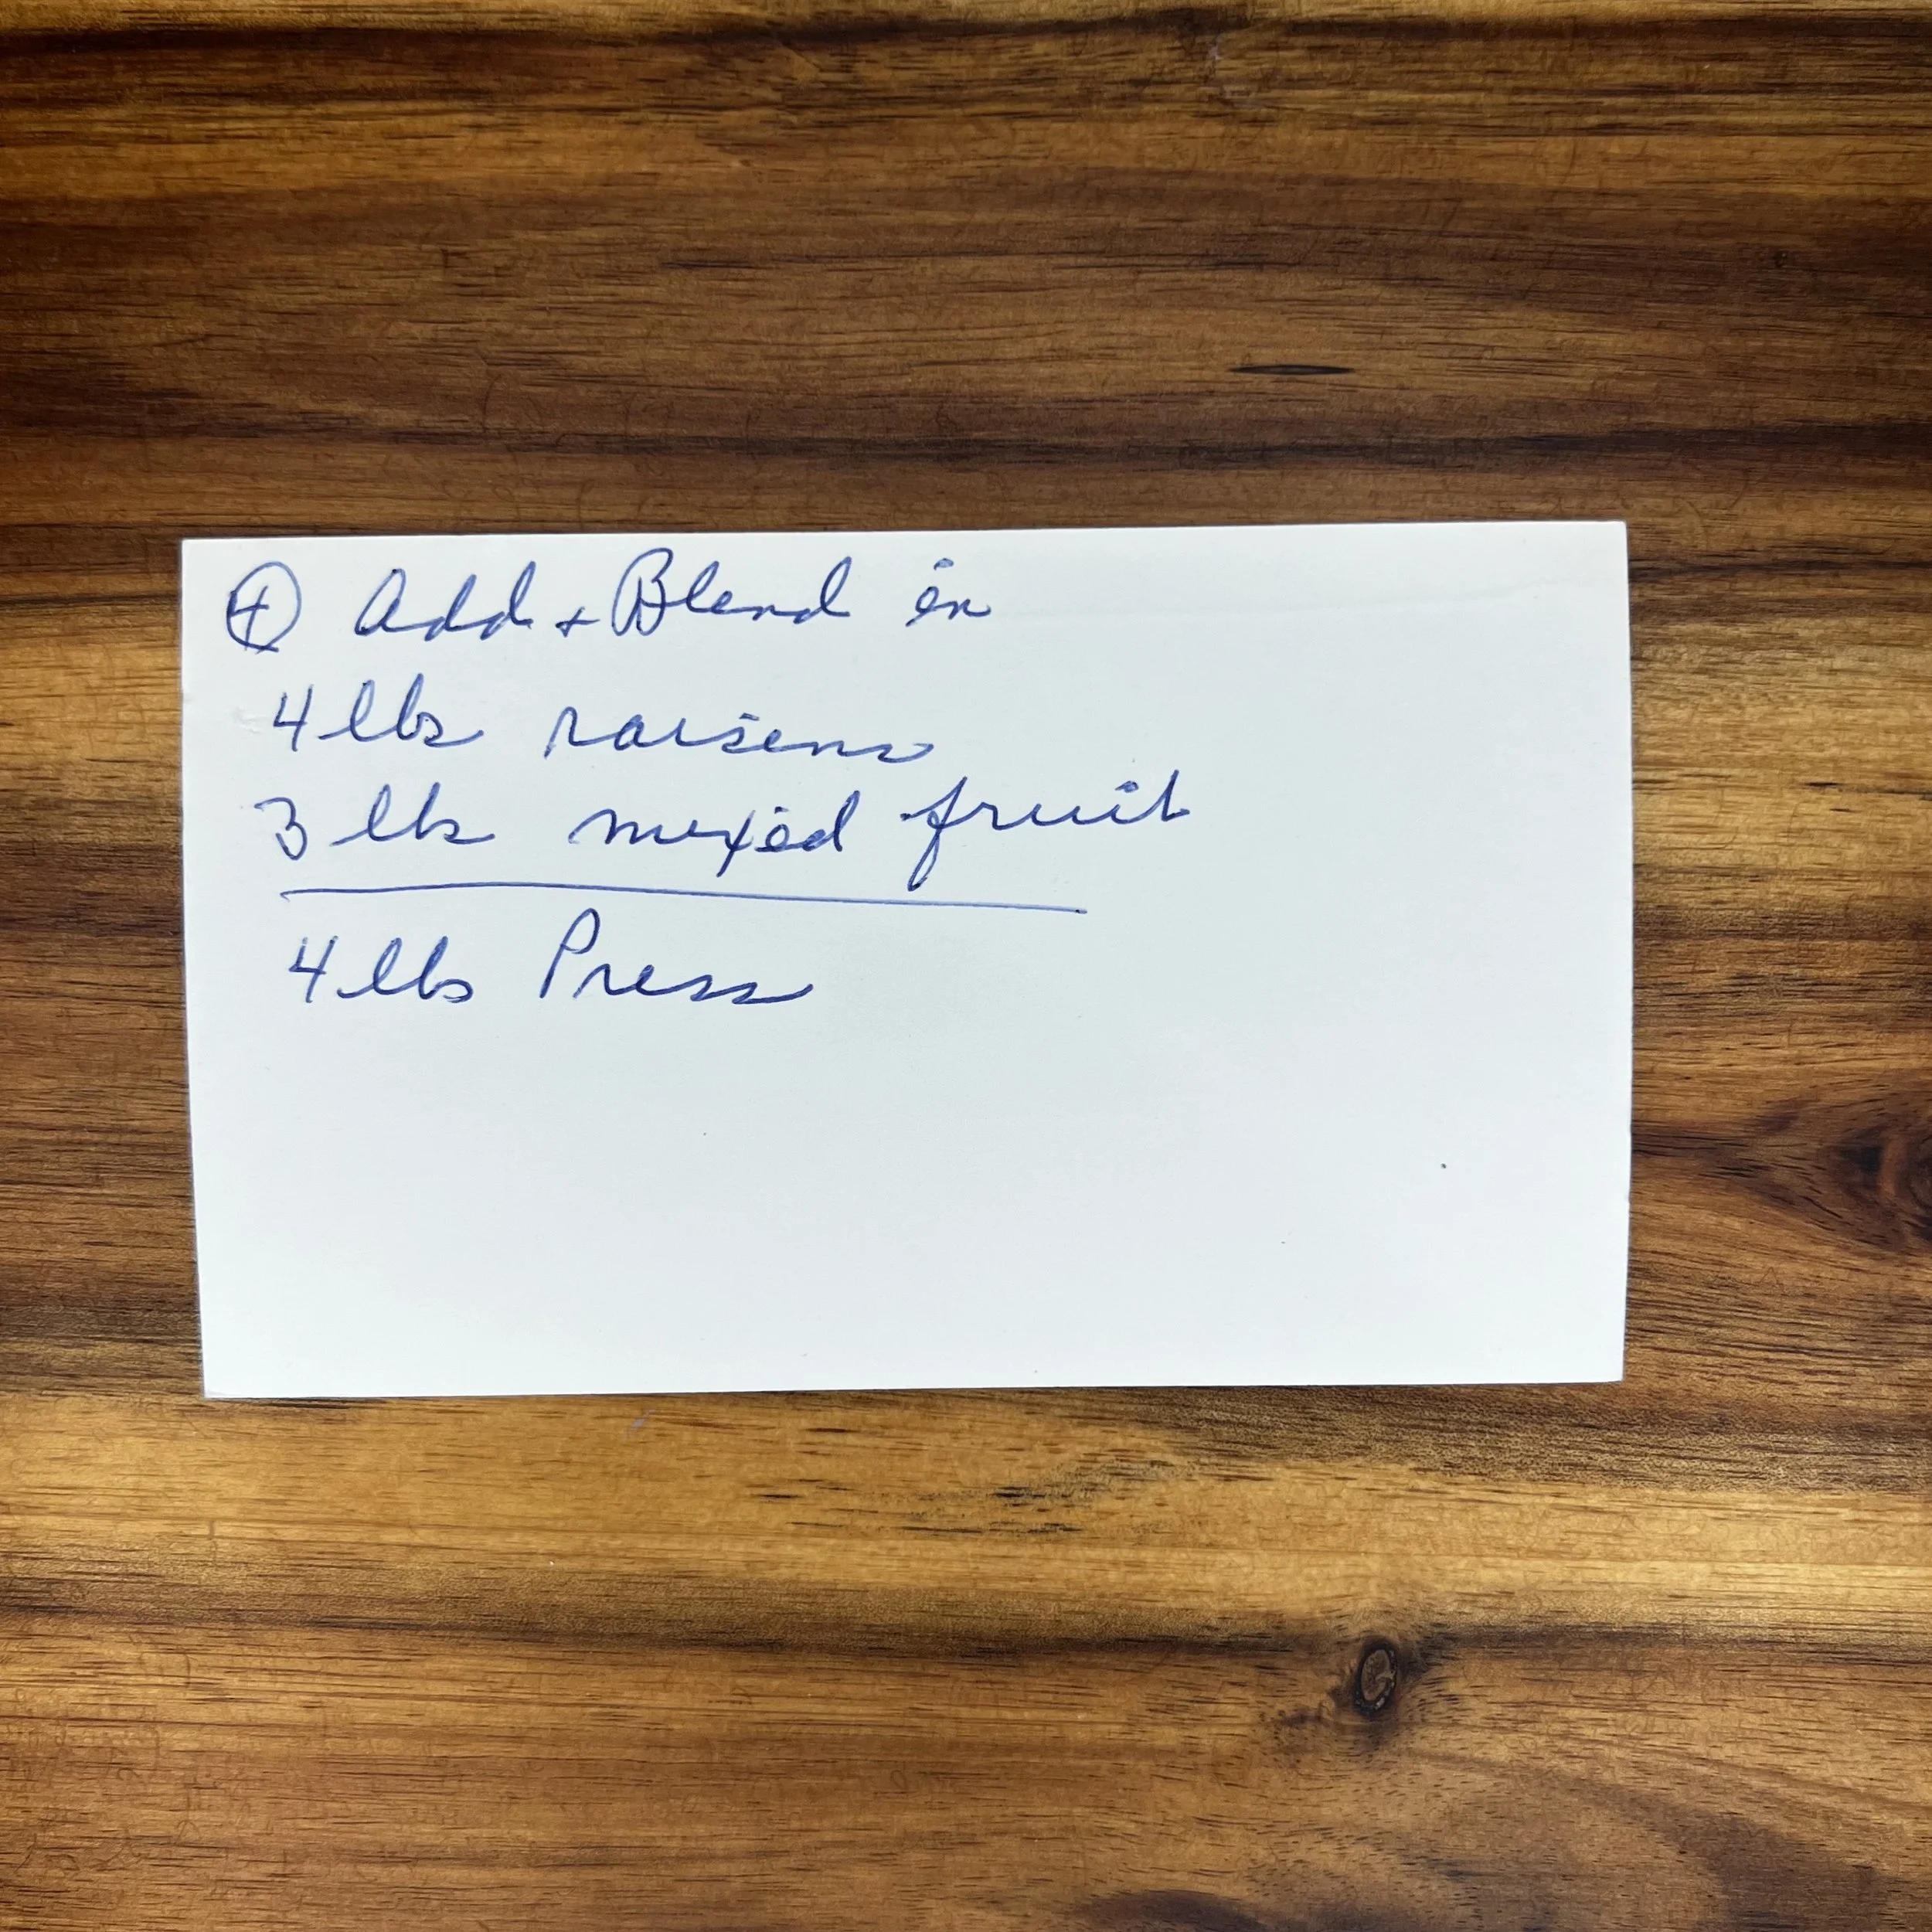 ④ Add + Blend in
4 lbs raisens
3 lbs mixed fruit
4 lbs Press